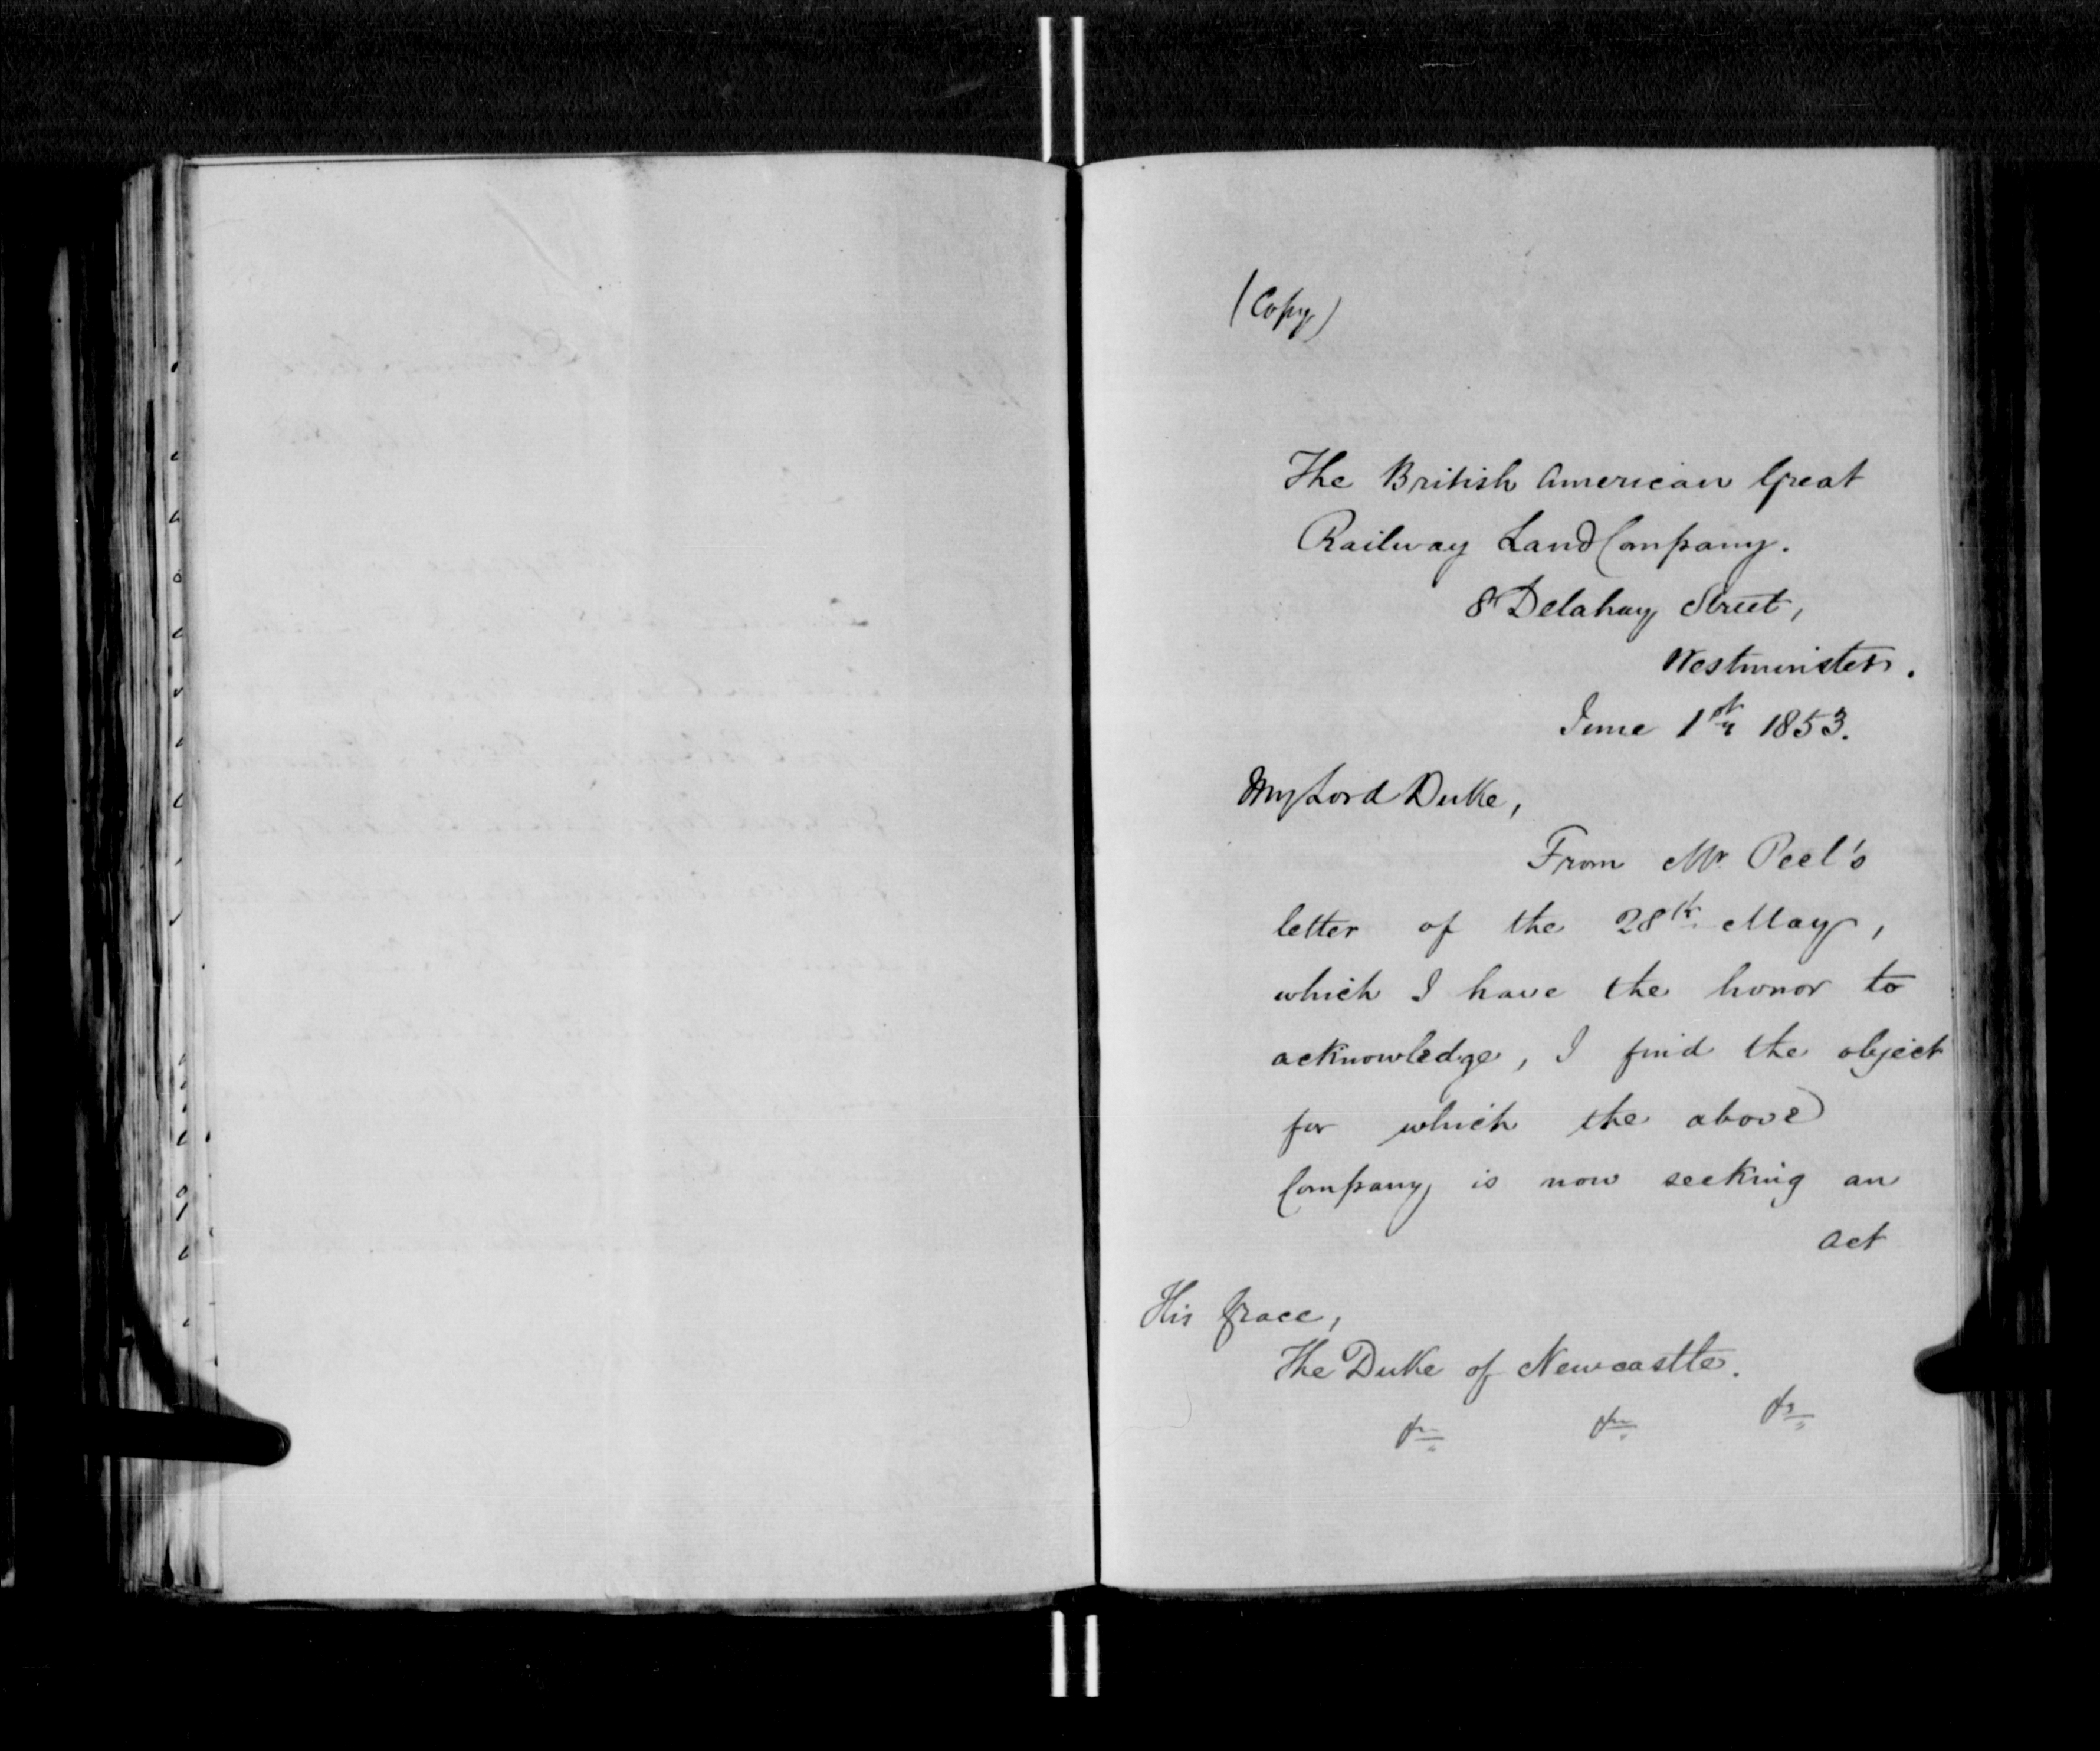 (Copy)
The British American Great
Railway Land Company.
8 Delahay Street,
Westminster.
June 1st 1853.
My Lord Duke,
From Mr. Peel's
letter of the 28th May,
which I have the honor to
acknowledge, I find the object
for which the above
Company is now seeking an
Act
His Grace,
The Duke of Newcastle.